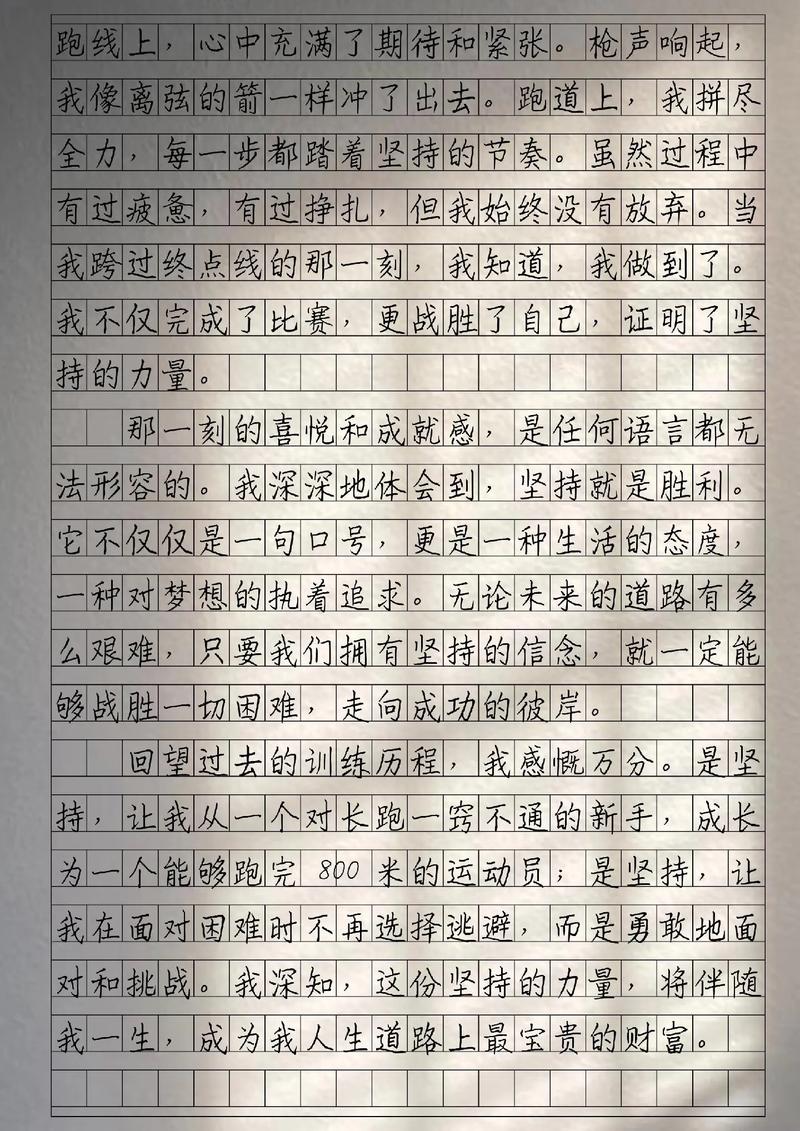 跑线上，心中充满了期待和紧张。枪声响起，
我像离弦的箭一样冲了出去。跑道上，我拼尽
全力，每一步都踏着坚持的节奏。虽然过程中
有过疲惫，有过挣扎，但我始终没有放弃。当
我跨过终点线的那一刻，我知道，我做到了。
我不仅完成了比赛，更战胜了自己，证明了坚
持的力量。
那一刻的喜悦和成就感，是任何语言都无
法形容的。我深深地体会到，坚持就是胜利。
它不仅仅是一句口号，更是一种生活的态度，
一种对梦想的执着追求。无论未来的道路有多
么艰难，只要我们拥有坚持的信念，就一定能
够战胜一切困难，走向成功的彼岸。
回望过去的训练历程，我感慨万分。是坚
持，让我从一个对长跑一窍不通的新手，成长
为一个能够跑完 800 米的运动员；是坚持，让
我在面对困难时不再选择逃避，而是勇敢地面
对和挑战。我深知，这份坚持的力量，将伴随
我一生，成为我人生道路上最宝贵的财富。